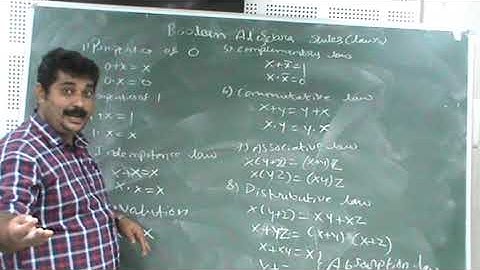 Boolean Algebra Rules (laws)
1) Properties of 0
0+x = x
0·x = 0
of 1
x = 1
1·x = x
Idempotence law
x+x=x
x·x=x
x
5) Complementary law
x+x̄=1
x·x̄=0
6) Commutative law
x+y = y+x
x·y = y·x
7) Associative law
x(y+z)=(x+y)z
x(yz)=(xy)z
8) Distributive law
x(y+z)=xy+xz
x+yz=(x+y)(x+z)
x+xy=x} Absorption law